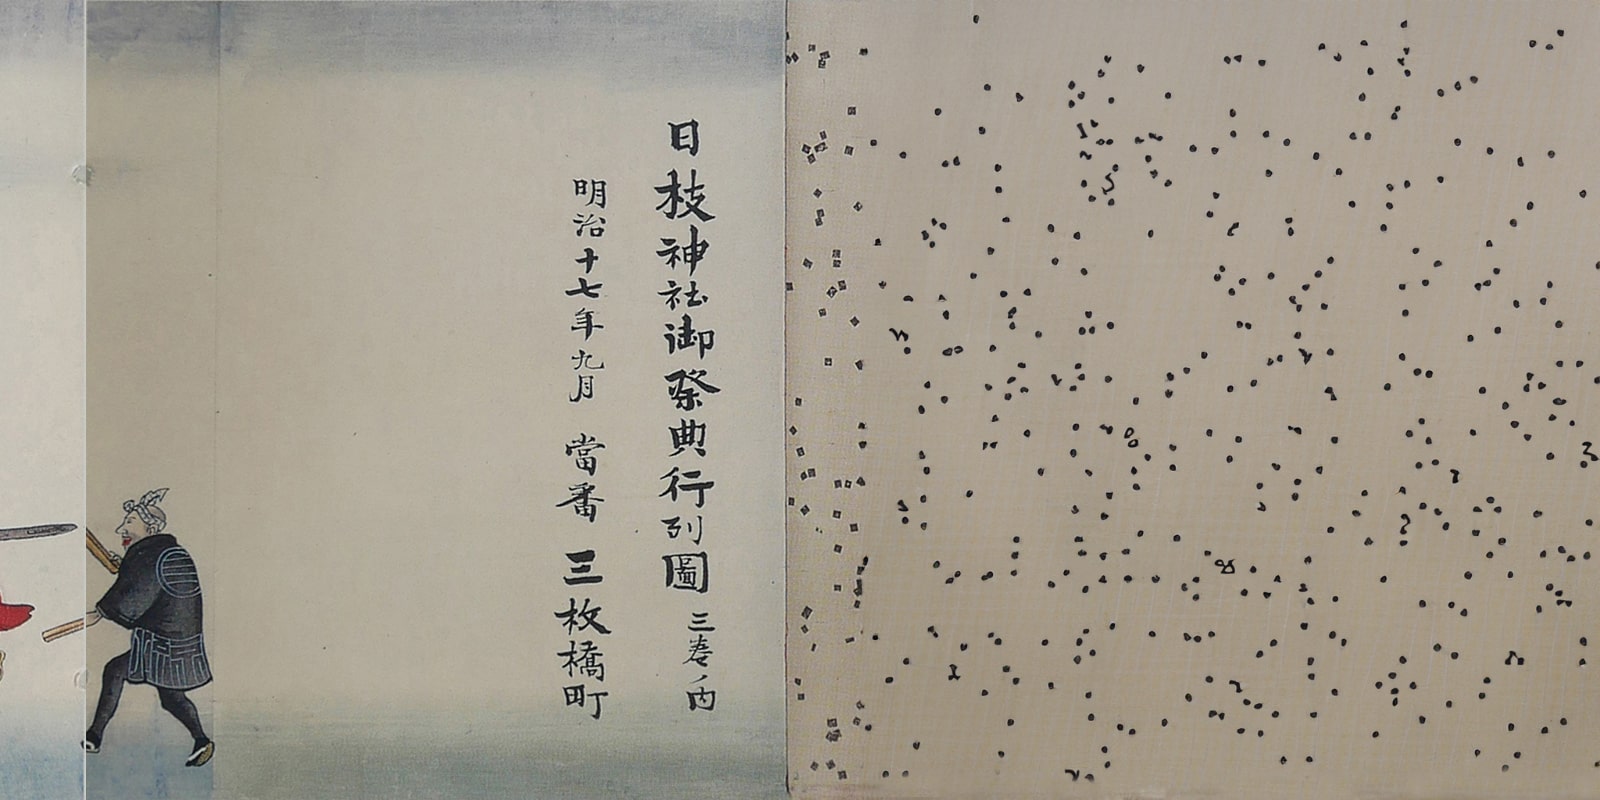 日枝神社御祭典行列圖 三巻ノ内
明治十七年九月 當番 三枚橋町